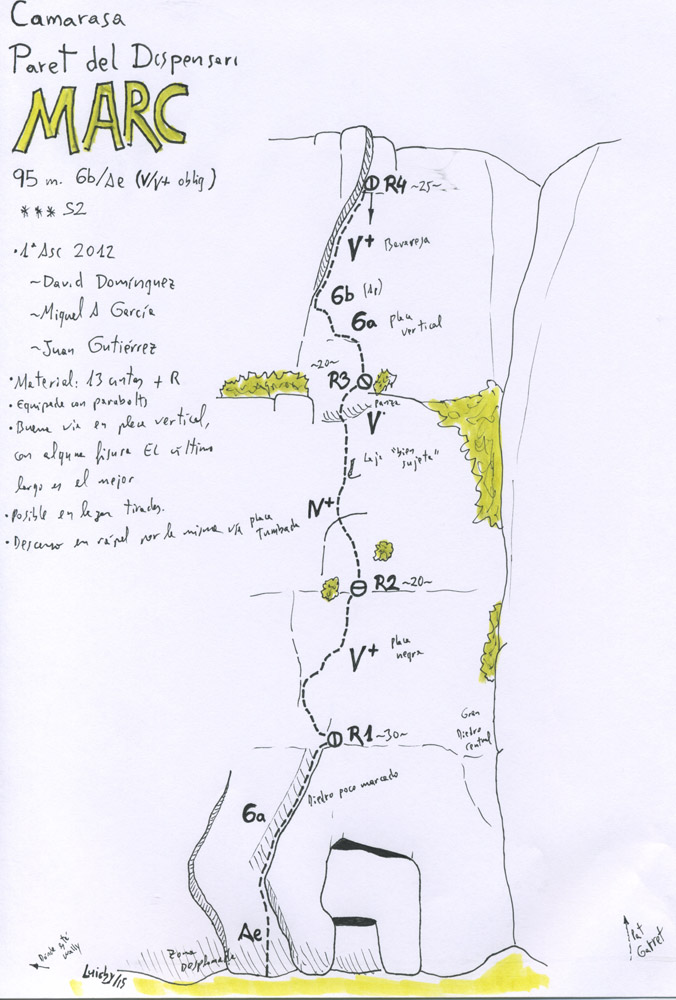 Camarasa
Paret del Dispensari
MARC
95 m. 6b/Ae (V/V+ oblig)
*** S2
• 1ª Asc 2012
~David Domínguez
~Miquel A García
~Juan Gutiérrez
• Material: 13 cintas + R
• Equipada con parabolts
• Buena via en placa vertical,
con alguna fisura El último
largo es el mejor
• Posible enlazar tiradas.
• Descenso en rápel por la misma vía
R4 ~25~
V+ Bavaresa
6b (Ae)
6a placa
vertical
~20~
R3
panza
V
Laja "bien
sujeta"
IV+
placa
tumbada
R2 ~20~
V+ placa
negra
R1 ~30~
Gran
Diedro
central
Diedro poco marcado
6a
Ae
Zona
Desplomada
Donde está
Wally
Luichy/15
Pat
Garret